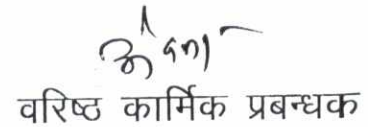 वरिष्ठ कार्मिक प्रबन्धक